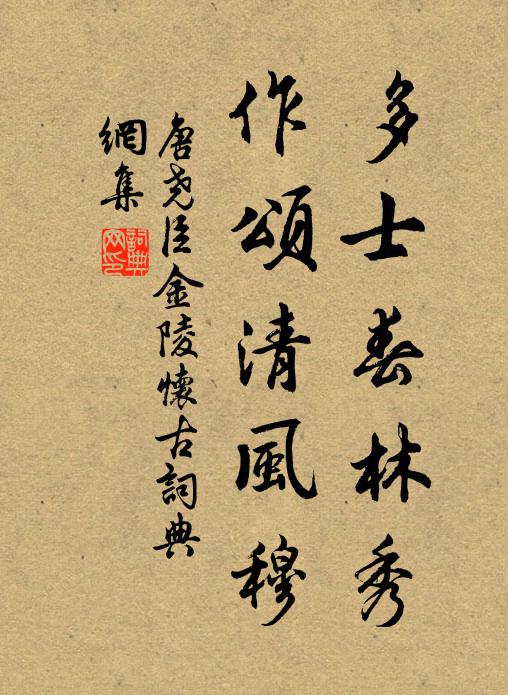 多士春林秀
作頌清風穆
唐堯臣金陵懷古詞典
網集
詞典
网印